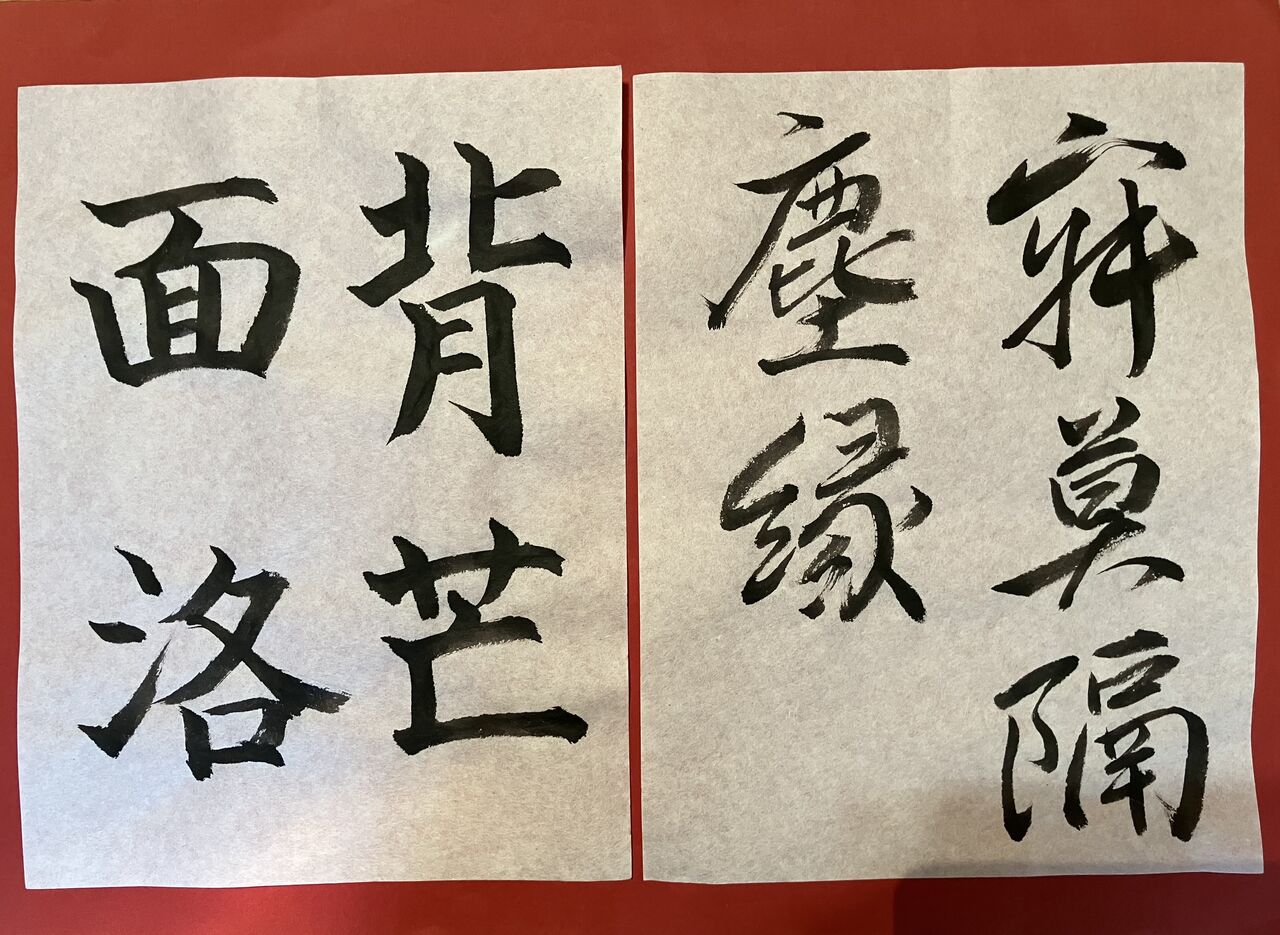 寂莫隔
塵縁
背芒
面洛